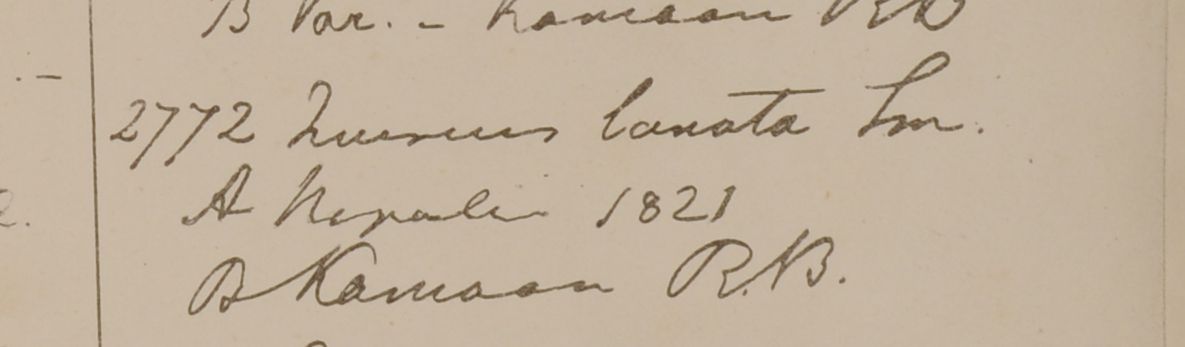 B Var. - Kamaon RB
2772 Quercus lanata Sm.
A Napalia 1821
B Kamaon R.B.